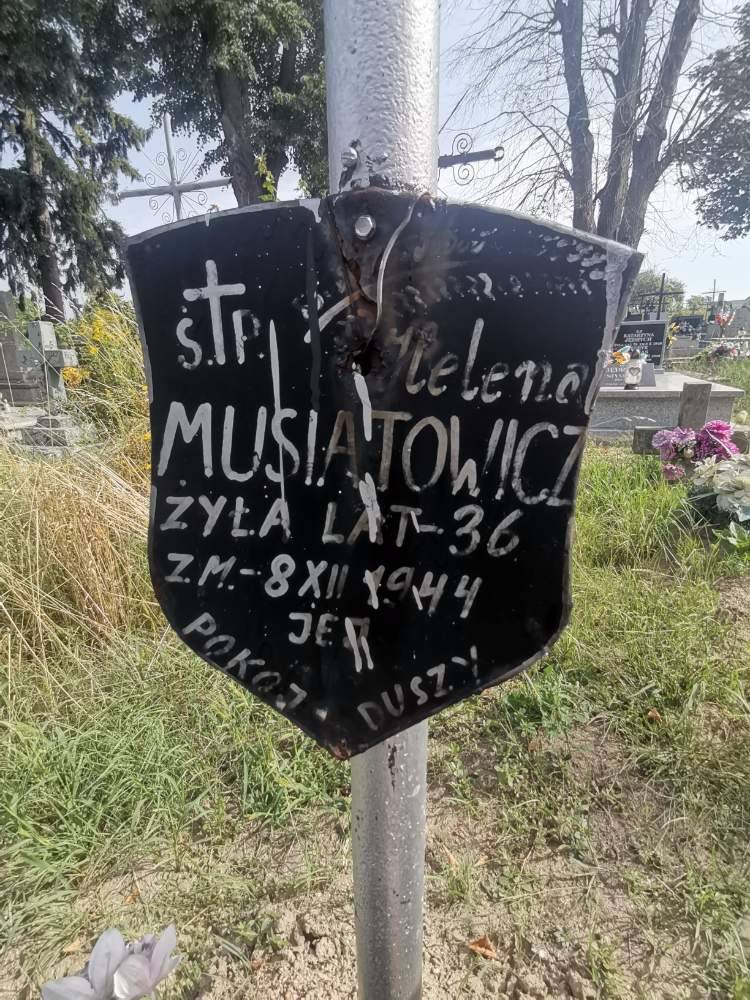 Ś.†P. Helena
MUSIATOWICZ
ŻYŁA LAT-36
Z.M.-8 XII 1944
JEJ
POKÓJ - DUSZY